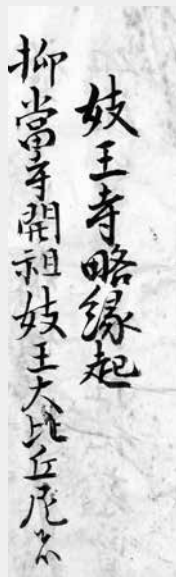 妓王寺略縁起
抑當寺開祖妓王大比丘尼者